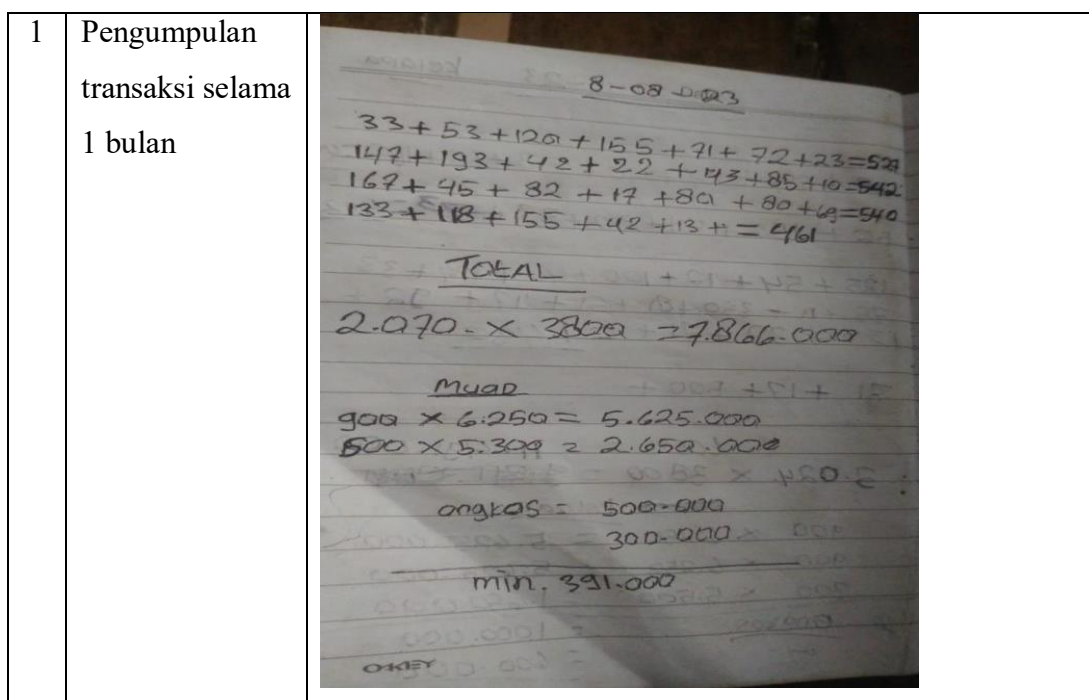 1
Pengumpulan
transaksi selama
1 bulan
8-08-2023
33+53+120+155+71+72+23=527
147+193+42+22+43+85+10=542
167+45+82+17+80+80+69=540
133+118+155+42+13+=461
TOTAL
2.070.- x 3800 = 7.866.000
MUAD
900 x 6.250 = 5.625.000
500 x 5.300 = 2.650.000
ongkos = 500.000
300.000
min. 391.000
OKEY